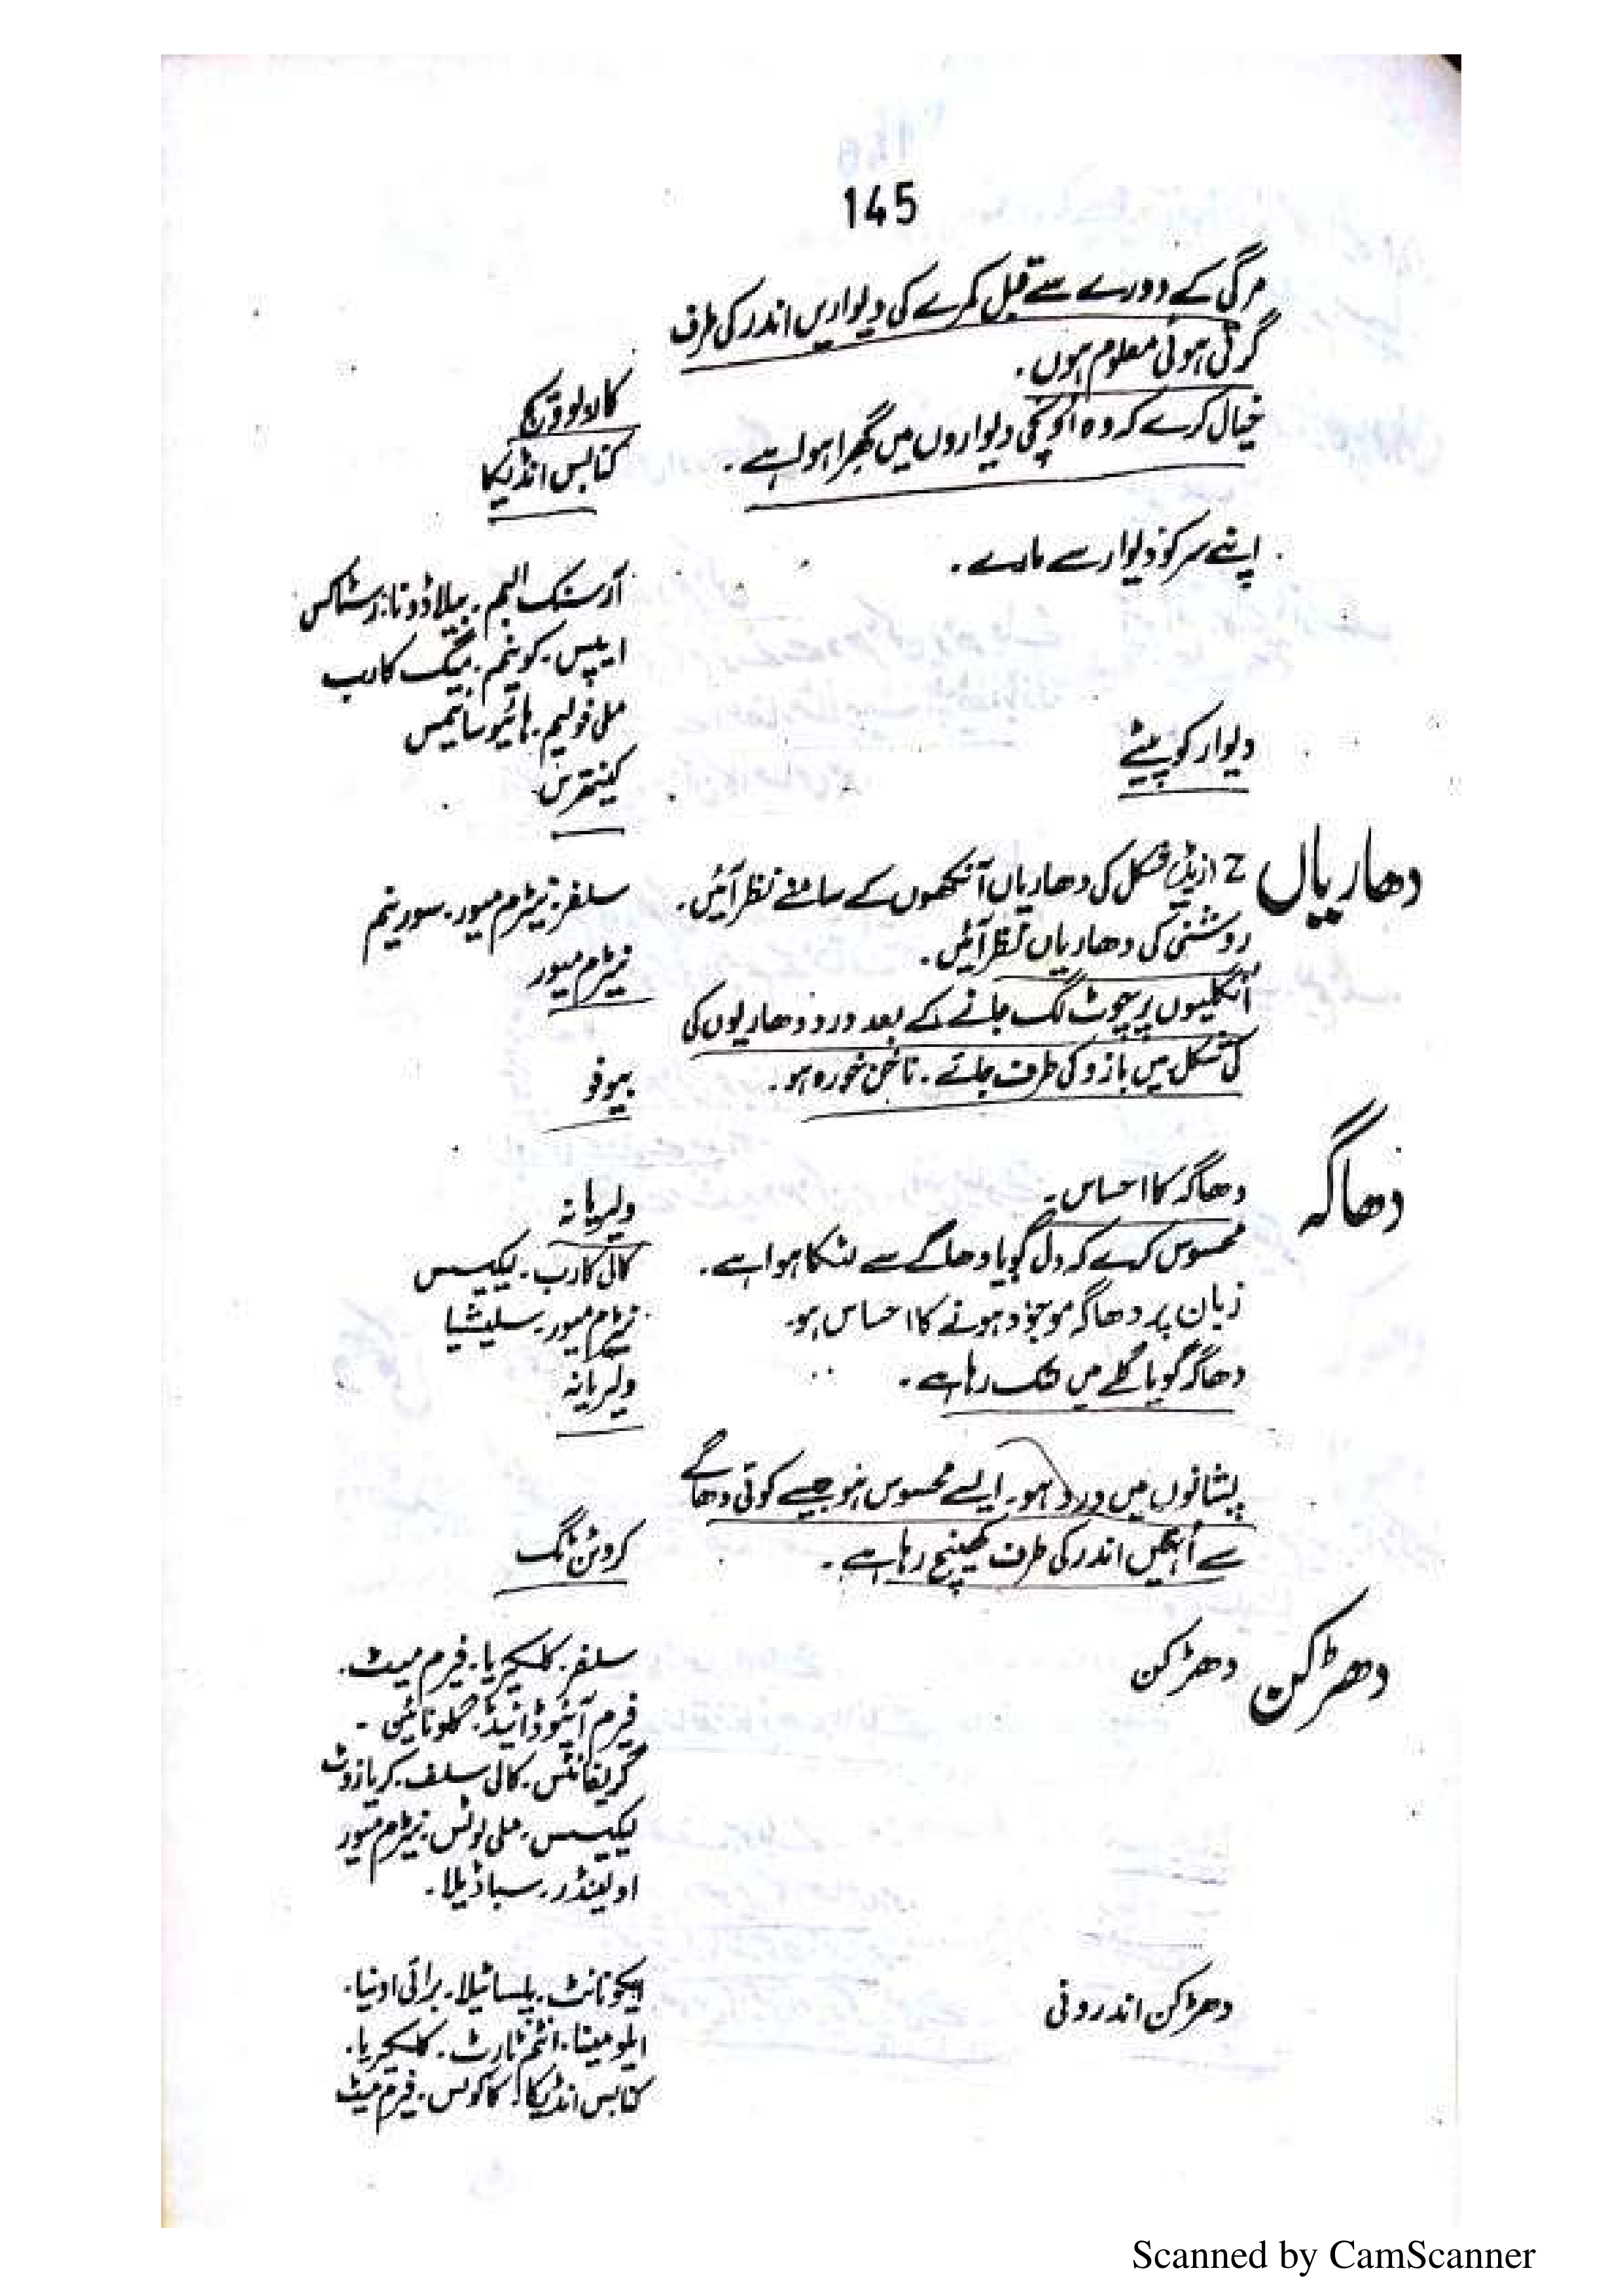 145
مرگی کے دورے سے قبل کمرے کی دیواریں اندر کی طرف
گرتی ہوئی معلوم ہوں۔
خیال کرے کہ وہ اونچی دیواروں میں گھرا ہوا ہے۔
کنابس انڈیکا
اپنے سر کو دیوار سے مارے۔
آرسنک البم۔ بیلاڈونا۔ رسٹاکس
ایپس۔ کونیم۔ میگ کارب
ملی فولیم۔ ہائیوسائیمس
دیوار کو پیٹے
کینتھرس
دھاریاں
Z زیڈ شکل کی دھاریاں آنکھوں کے سامنے نظر آئیں۔
سلفر۔ نیٹرم میور۔ سورینم
روشنی کی دھاریاں نظر آئیں۔
نیٹرم میور
انگلیوں پر چوٹ لگ جانے کے بعد درد دھاریوں کی
کی شکل میں بازو کی طرف جائے۔ ناخن خورہ ہو۔
بیوفو
دھاگہ
دھاگہ کا احساس۔
ولیریانہ
محسوس کرے کہ دل گویا دھاگے سے لٹکا ہوا ہے۔
کالی کارب۔ لیکیسس
زبان پر دھاگہ موجود ہونے کا احساس ہو۔
نیٹرم میور۔ سلیشیا
دھاگہ گویا گلے میں لٹک رہا ہے۔
ولیریانہ
پستانوں میں درد ہو۔ ایسے محسوس ہو جیسے کوئی دھاگے
سے انہیں اندر کی طرف کھینچ رہا ہے۔
کروٹن ٹگ
دھڑکن
دھڑکن
سلفر۔ کلکیریا۔ فیرم میٹ۔
فیرم آئیوڈائیڈ۔ گلونائین۔
گریفائٹس۔ کالی سلف۔ کریازوٹ
لیکیسس۔ ملی لوٹس۔ نیٹرم میور
اولینڈر۔ سباڈیلا۔
دھڑکن اندرونی
ایکونائٹ۔ پلساٹیلا۔ برائی اونیا۔
ایلومینا۔ انٹم ٹارٹ۔ کلکیریا۔
کنابس انڈیکا۔ کاکولس۔ فیرم میٹ
Scanned by CamScanner